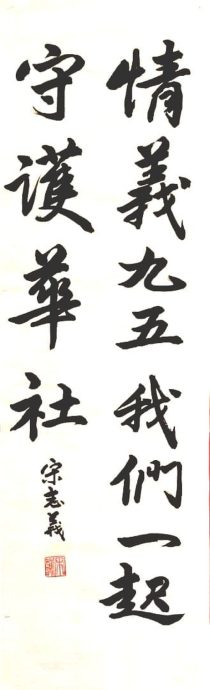 情義九五我們一起
守護華社
宋志義